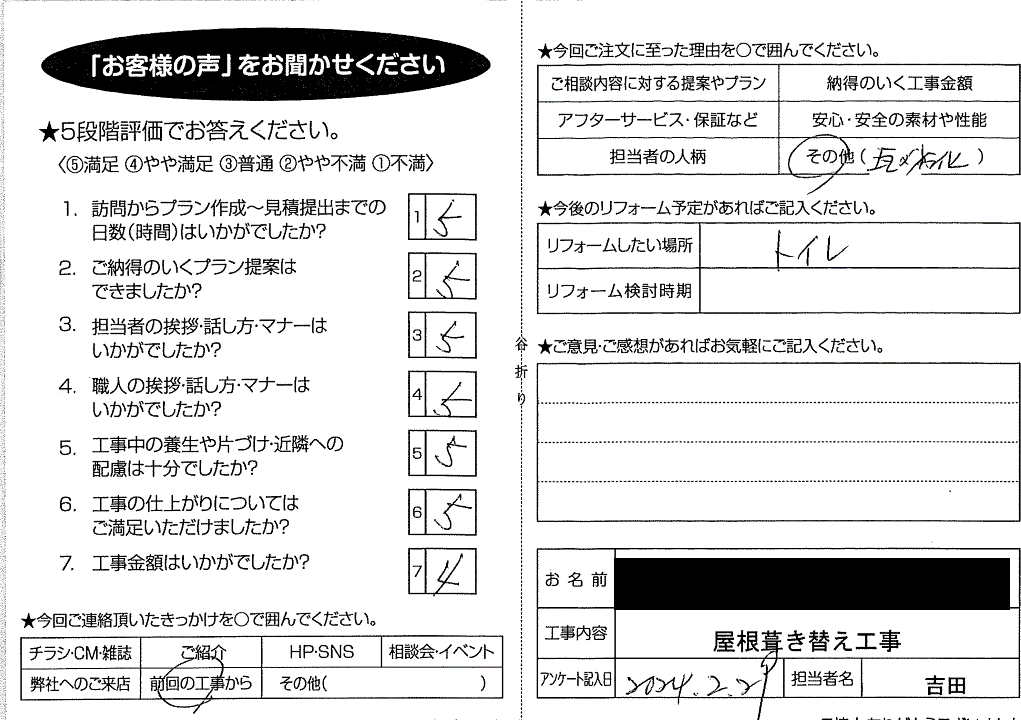 「お客様の声」をお聞かせください
★5段階評価でお答えください。
〈⑤満足 ④やや満足 ③普通 ②やや不満 ①不満〉
1. 訪問からプラン作成〜見積提出までの
日数(時間)はいかがでしたか?
1 5
2. ご納得のいくプラン提案は
できましたか?
2 5
3. 担当者の挨拶・話し方・マナーは
いかがでしたか?
3 5
4. 職人の挨拶・話し方・マナーは
いかがでしたか?
4 5
5. 工事中の養生や片づけ・近隣への
配慮は十分でしたか?
5 5
6. 工事の仕上がりについては
ご満足いただけましたか?
6 5
7. 工事金額はいかがでしたか?
7 4
★今回ご連絡頂いたきっかけを○で囲んでください。
チラシ・CM・雑誌 ご紹介 HP・SNS 相談会・イベント
弊社へのご来店 前回の工事から その他( )
谷折り
★今回ご注文に至った理由を○で囲んでください。
ご相談内容に対する提案やプラン 納得のいく工事金額
アフターサービス・保証など 安心・安全の素材や性能
担当者の人柄 その他( )
★今後のリフォーム予定があればご記入ください。
リフォームしたい場所 トイレ
リフォーム検討時期
★ご意見・ご感想があればお気軽にご記入ください。
お名前
工事内容 屋根葺き替え工事
アンケート記入日 2024.2.29 担当者名 吉田